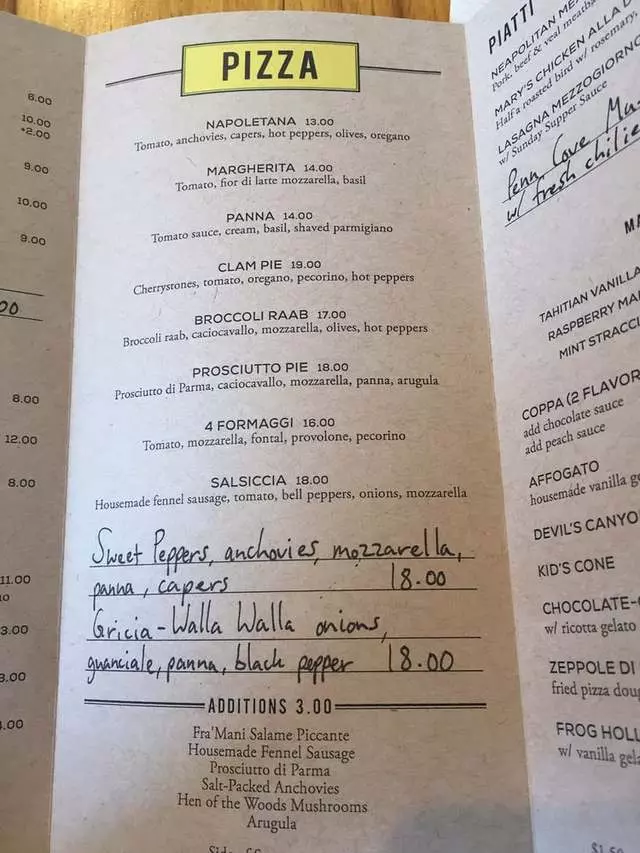 8.00
10.00
+2.00
9.00
10.00
9.00
00
8.00
12.00
8.00
11.00
3.00
PIZZA
NAPOLETANA 13.00
Tomato, anchovies, capers, hot peppers, olives, oregano
MARGHERITA 14.00
Tomato, fior di latte mozzarella, basil
PANNA 14.00
Tomato sauce, cream, basil, shaved parmigiano
CLAM PIE 19.00
Cherrystones, tomato, oregano, pecorino, hot peppers
BROCCOLI RAAB 17.00
Broccoli raab, caciocavallo, mozzarella, olives, hot peppers
PROSCIUTTO PIE 18.00
Prosciutto di Parma, caciocavallo, mozzarella, panna, arugula
4 FORMAGGI 16.00
Tomato, mozzarella, fontal, provolone, pecorino
SALSICCIA 18.00
Housemade fennel sausage, tomato, bell peppers, onions, mozzarella
Sweet Peppers, anchovies, mozzarella,
panna, capers 18.00
Gricia - Walla Walla onions,
guanciale, panna, black pepper 18.00
ADDITIONS 3.00
Fra'Mani Salame Piccante
Housemade Fennel Sausage
Prosciutto di Parma
Salt-Packed Anchovies
Hen of the Woods Mushrooms
Arugula
PIATTI
NEAPOLITAN ME
Pork, beef & veal meatba
MARY'S CHICKEN ALLA D
Half a roasted bird w/ rosemary
LASAGNA MEZZOGIORNO
w/ Sunday Supper Sauce
Penn Cove Mu
w/ fresh chilie
TAHITIAN VANILLA
RASPBERRY MA
MINT STRACCI
COPPA (2 FLAVOR
add chocolate sauce
add peach sauce
AFFOGATO
housemade vanilla ge
DEVIL'S CANYO
KID'S CONE
CHOCOLATE-
w/ ricotta gelato
ZEPPOLE DI
fried pizza dou
FROG HOLL
w/ vanilla gela